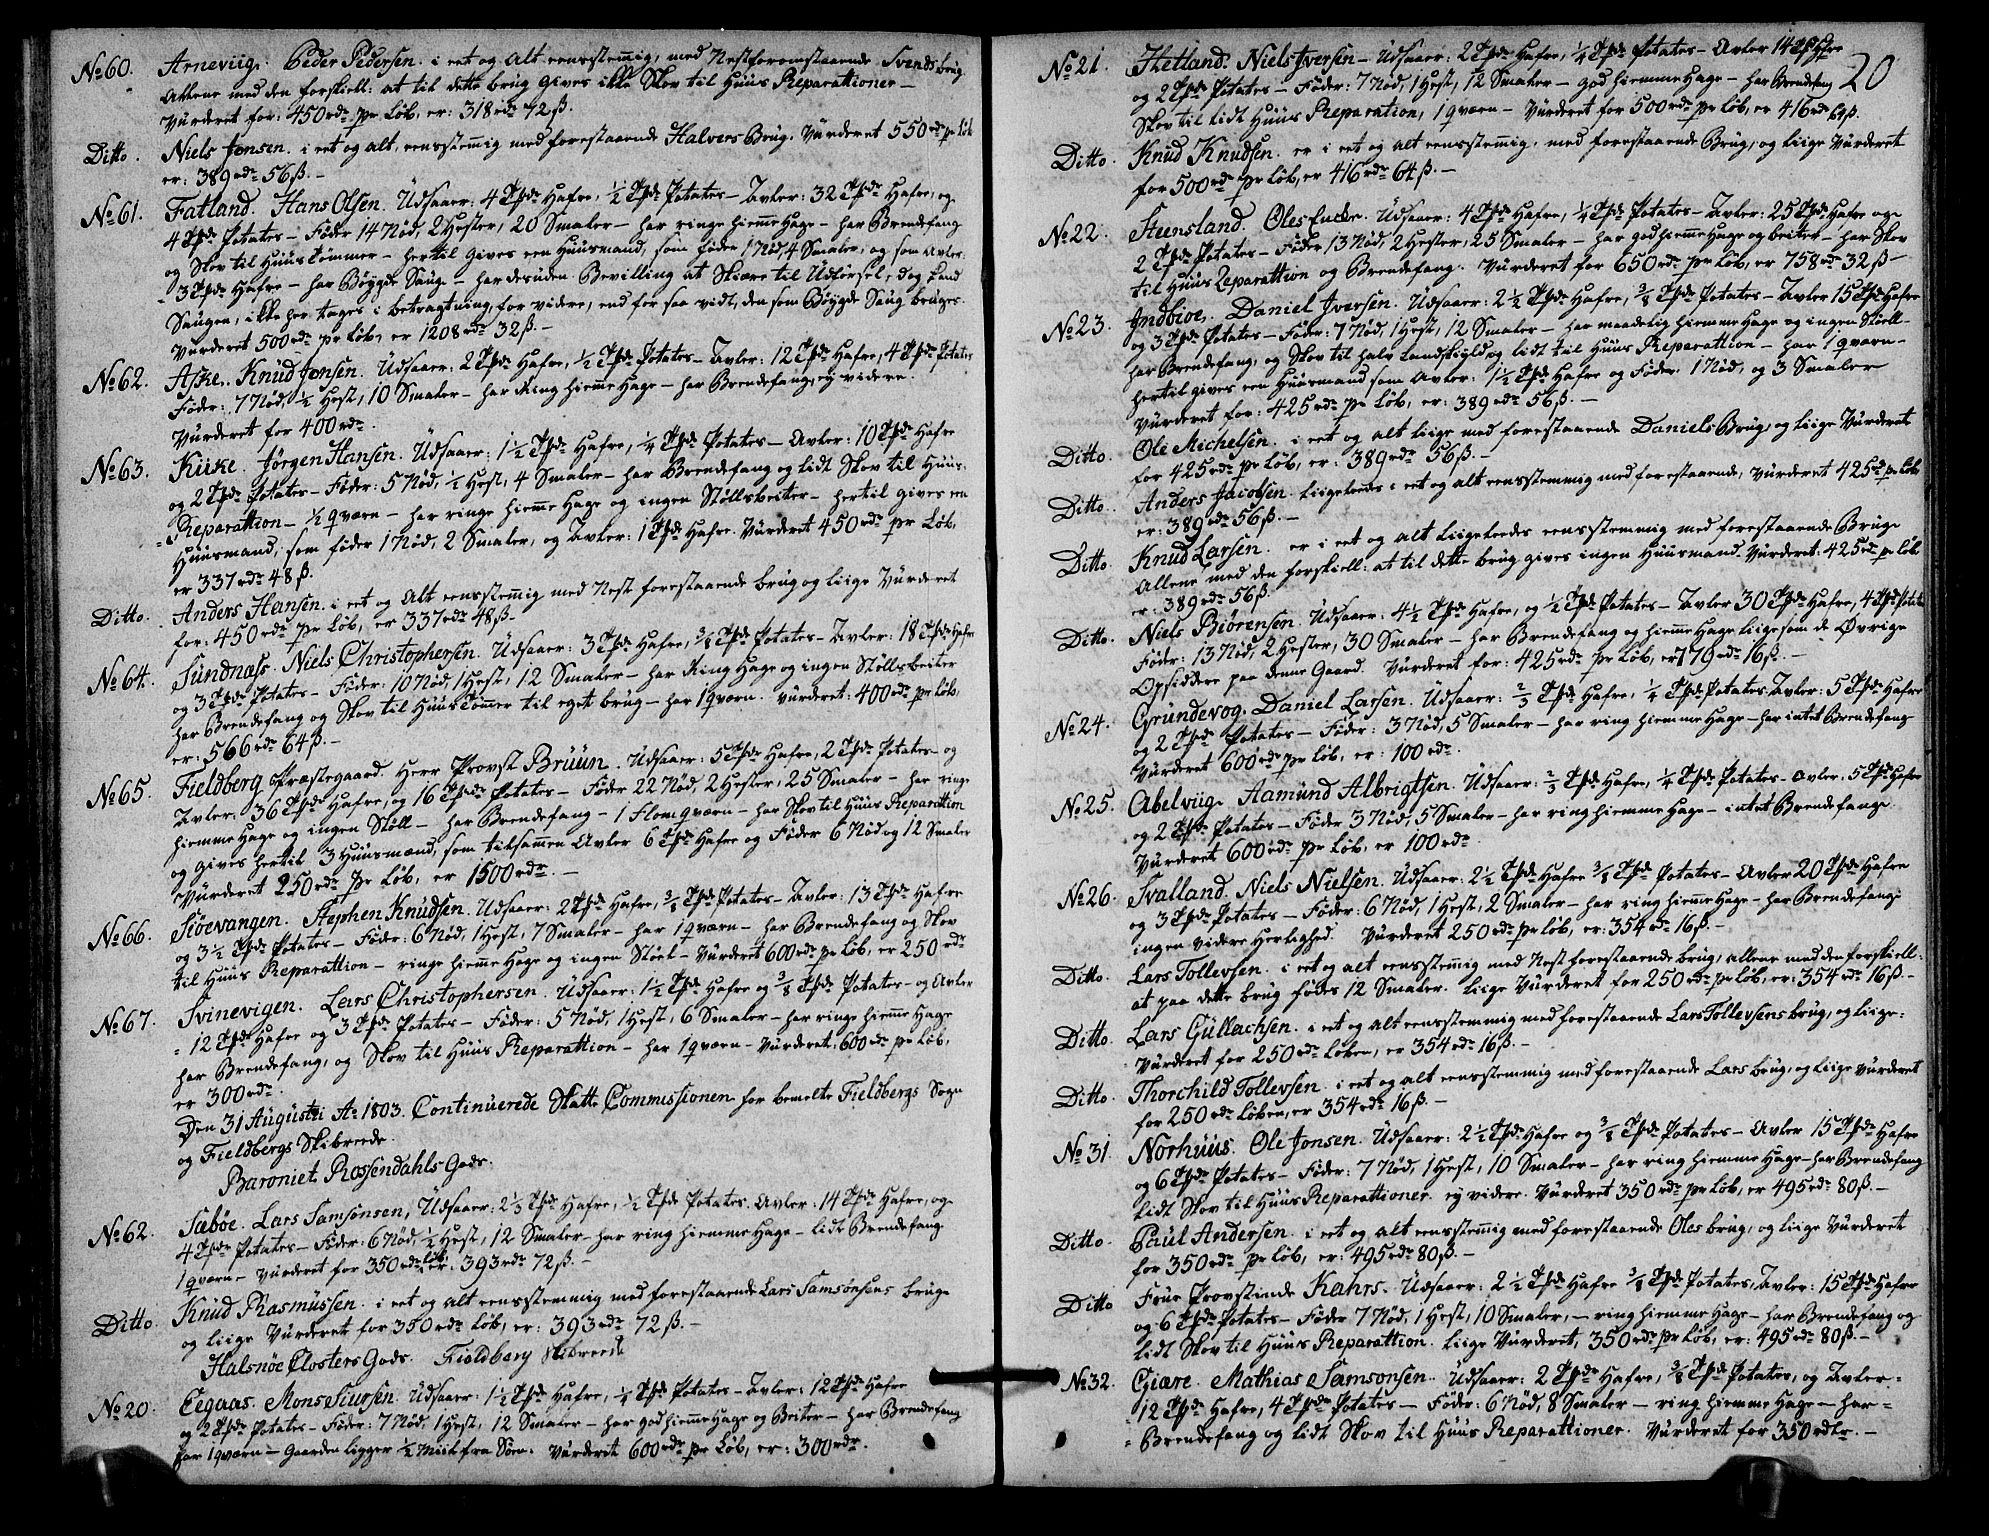 No 60. Arneviig. Peder Pedersen. i eet og Alt eensstemig, med Nestforomstaaende Svends brüg
Allene med den forskiell: at til dette brüg gives ikke Skov til Hüüs Reparationer –
Vürderet for: 450 rdr pr Løb, er: 318 rdr 72 ß.
Ditto. Niels Jonsen. i eet og alt, eensstemig med forestaaende Halvers Brüg. Vürderet 550 rdr pr Løb
er: 389 rdr 56 ß. –
No 61. Fatland. Hans Olsen. Üdsaaer: 4 Tdr Hafre, ½ Tdr Potates – Avler: 32 Tdr Hafre, og
4 Tdr Potates – Føder 14 Nød, 2 Hester, 20 Smaler – har ringe hieme Hage – har Brendefang
og Skov til Hüüs Tømmer – hertil gives een Hüüsmand, som føder 1 Nød, 4 Smaler, og som Avler
3 Tdr Hafre – har Bøygde Saüg – har desüden Bevilling at Skiære til Üdførsel, dog kand
Saügen, ikke her tages i betragtning, for videre, end for saa vidt, den som Bøygde Saüg brüges
Vürderet 500 rdr pr Løb, er 1208 rdr 32 ß. –
No 62. Aske. Knüd Jonsen. Üdsaaer: 2 Tdr Hafre, ½ Tdr Potates – Avler: 12 Tdr Hafre, 4 Tdr Potates
Føder: 7 Nød, ½ Hest, 10 Smaler – har Ring hieme Hage – har Brendefang, ey videre.
Vürderet for 400 rdr.
No 63. Kirke. Jørgen Hansen. Üdsaaer: 1½ Tdr Hafre, ¼ Tdr Potates – Avler: 10 Tdr Hafre
og 2 Tdr Potates – Føder: 5 Nød, ½ Hest, 4 Smaler – har Brendefang og lidt Skov til Hüüs
Reparattion – ½ qværn – har ringe hieme Hage og ingen Støllsbeiter – hertil gives een
Hüüsmand, som føder 1 Nød, 2 Smaler, og Avler: 1 Tdr Hafre. Vürderet 450 rdr pr Løb,
er 337 rdr 48 ß.
Ditto. Anders Hansen. i eet og Alt eensstemig med Nest forestaaende brüg og liige Vürderet
for: 450 rdr pr Løb, er 337 rdr 48 ß. –
No 64. Sündnæs. Niels Christophersen. Üdsaaer: 3 Tdr Hafre, 3/8 Tdr Potates – Avler: 18 Tdr Hafre
og 3 Tdr Potates – Føder: 10 Nød 1 Hest, 12 Smaler – har Ring Hage og ingen Støllsbeiter
har Brendefang og Skov til Hüüs Tømer til eget brüg – har 1 qværn. vürderet: 400 rdr pr Løb,
er: 566 rdr 64 ß. –
No 65. Fieldberg Præstegaard. Herr Provst Brüün. Üdsaaer: 5 Tdr Hafre, 2 Tdr Potates – og
Avler: 36 Tdr Hafre, og 16 Tdr Potates – Føder 22 Nød, 2 Hester, 25 Smaler – har ringe
hiemme Hage og ingen Støll – har Brendefang – 1 Flomqværn – har Skov til Hüüs Reparattion
og gives hertil 3 Hüüsmænd, som tilsammen Avler 6 Tdr Hafre og Føder 6 Nød og 12 Smaler
Vürderet 250 rdr pr Løb, er 1500 rdr. –
No 66. Siøevangen. Stephen Knüdsen. Üdsaaer: 2 Tdr Hafre, 3/8 Tdr Potates – Avler: 13 Tdr Hafre
og 3½ Tdr Potates – Føder: 6 Nød, 1 Hest, 7 Smaler – har 1 qværn – har Brendefang og Skov
til Hüüs Reparattion – ringe hieme Hage og ingen Støel – Vürderet 600 rdr pr Løb, er 250 rdr
No 67. Svinevigen. Lars Christophersen. Üdsaaer: 1½ Tdr Hafre og 3/8 Tdr Potates – og Avler
12 Tdr Hafre og 3 Tdr Potates – Føder: 5 Nød, 1 Hest, 6 Smaler – har ringe hieme Hage
har Brendefang, og Skov til Hüüs Reparattion – har 1 qværn – Vürderet: 600 rdr pr Løb,
er 300 rdr.
Den 31 Aügüsti Ao 1803. Continüerede Skatte Commissionen for bemelte Fieldbergs Sogn
og Fieldbergs Skibrede.
Baroniet Rossendahls Gods.
No 62. Sæbøe. Lars Samsonsen, Üdsaaer: 2½ Tdr Hafre, ½ Tdr Potates. Avler: 14 Tdr Hafre, og
4 Tdr Potates – Føder: 6 Nød, ½ Hest, 12 Smaler – har ring hiemme Hage – lidt Brendefang
1 qværn – Vürderet for 350 rdr Løb, er: 393 rdr 72 ß. –
Ditto. Knüd Rasmüssen. i eet og alt eensstemmig med forestaaende Lars Samsonsens brüg
og liige Vürderet for 350 rdr Løb, er: 393 rdr 72 ß. –
Halsnøe Closters Gods. Fieldberg Skibrede
No 20. Eegaas. Mons Siursen. Üdsaaer: 1½ Tdr Hafre, ¼ Tdr Potates – Avler: 12 Tdr Hafre
og 2 Tdr Potates – Føder: 7 Nød, 1 Hest, 12 Smaler – har god hieme Hage og Beiter – har Brendefang
har 1 qværn – Gaarden ligger ½ Miil fra Søen. Vürderet 600 rdr pr Løb, er: 300 rdr.
20
No 21. Hetland. Niels Iversen – Üdsaaer: 2 Tdr Hafre, ¼ Tdr Potates – Avler 14 Tdr Hafre
og 2 Tdr Potates – Føder: 7 Nød, 1 Hest, 12 Smaler – god hiemme Hage – har Brendefang
Skov til lidt Hüüs Reparation, 1 qværn – Vürderet for 500 rdr pr Løb, er 416 rdr 64 ß.
Ditto. Knüd Knudsen. er i eet og alt eensstemig, med forestaaende Brüg, og liige Vürderet
for 500 rdr pr Løb, er 416 rdr 64 ß. –
No 22. Steensland. Oles Encke. Üdsaaer: 4 Tdr Hafre, ¼ Tdr Potates – Avler: 25 Tdr Hafre og
2 Tdr Potates – Føder 13 Nød, 2 Hester, 25 Smaler – har god hieme Hage og beiter – har Skov
til Hüüs Reparattion og Brendefang. Vürderet for 650 rdr pr Løb, er 758 rdr 32 ß –
No 23. Indbioe. Daniel Iversen. Üdsaaer: 2½ Tdr Hafre, 3/8 Tdr Potates – Avler 15 Tdr Hafre
og 3 Tdr Potates – Føder: 7 Nød, 1 Hest, 12 Smaler – har maadelig hieme Hage og ingen Støell –
har Brendefang, og Skov til halv Landskyld, og lidt til Hüüs Reparattion – har 1 qværn –
hertil gives een Hüüsmand som Avler: 1½ Tdr Hafre og Føder: 1 Nød, og 3 Smaler
Vürderet, for: 425 rdr pr Løb, er: 389 rdr 56 ß. –
Ditto. Ole Michelsen. i eet og alt liige med forestaaende Daniels Brüg, og liige Vürderet
for 425 rdr pr Løb, er: 389 rdr 56 ß. –
Ditto. Anders Jacobsen. liigeledes i eet og alt eensstemmig med forestaaende, Vürderet 425 rdr pr Løb
er: 389 rdr 56 ß. –
Ditto. Knüd Larsen. er i eet og alt liigeledes eensstemmig med forestaaende Brüg
Allene med den forskiell: at til dette brüg gives ingen Hüüsmand. Vürderet: 425 rdr pr Løb
er: 389 rdr 56 ß.
Ditto. Niels Biørensen. Üdsaaer: 4½ Tdr Hafre, og ½ Tdr Potates – Avler 30 Tdr Hafre, 4 Tdr Potates
Føder: 13 Nød, 2 Hester, 30 Smaler – har Brendefang og hieme Hage liige som de Øvrige
Opsiddere paa denne Gaard. Vürderet for: 425 rdr pr Løb, er 179 rdr 16 ß. –
No 24. Gründevog. Daniel Larsen. Üdsaaer: 2/3 Tdr Hafre, ¼ Tdr Potates Avler: 5 Tdr Hafre
og 2 Tdr Potates – Føder: 3 Nød, 5 Smaler – har ring hiemme Hage – har intet Brendefang
Vürderet 600 rdr pr Løb, er: 100 rdr.
No 25. Abelviig. Aamünd Albrigtsen. Üdsaaer: 2/3 Tdr Hafre, ¼ Tdr Potates – Avler: 5 Tdr Hafre
og 2 Tdr Potates – Føder 3 Nød, 5 Smaler – har ring hiemme Hage – intet Brendefang.
Vürderet 600 rdr pr Løb, er 100 rdr.
No 26. Svalland. Niels Nielsen. Üdsaaer: 2½ Tdr Hafre 3/8 Tdr Potates – Avler 20 Tdr Hafre
og 3 Tdr Potates – Føder: 6 Nød, 1 Hest, 2 Smaler – har ring hieme Hage – har Brendefang
ingen videre Herlighed. Vürderet 250 rdr pr Løb, er: 354 rdr 16 ß. –
Ditto. Lars Tollevsen. i eet og alt eensstemig med Nest forestaaende brüg, allene med den forskiell:
at paa dette brüg fødes 12 Smaler. liige Vürderet for 250 rdr pr Løb, er: 354 rdr 16 ß. –
Ditto. Lars Güllachsen. i eet og alt eensstemmig med forestaaende Lars Tollevsens brüg, og liige
Vürderet for 250 rdr Løben, er 354 rdr 16 ß. –
Ditto. Thorchild Tollevsen. i eet og alt eensstemmig med forestaaende Lars brüg, og liige Vürderet
for 250 rdr Løben, er 354 rdr 16 ß. –
No 31. Norhüüs. Ole Jonsen. Üdsaaer: 2½ Tdr Hafre og 3/8 Tdr Potates – Avler 15 Tdr Hafre
og 6 Tdr Potates – Føder: 7 Nød, 1 Hest, 10 Smaler – har ring hiemme Hage – har Brendefang
lidt Skov til Hüüs Reparattioner. ey videre. Vürderet 350 rdr pr Løb, er 495 rdr 80 ß. –
Ditto. Paül Andersen. i eet og alt eensstemig med forestaaende Oles brüg, og liige Vürderet
for 350 rdr pr Løb, er: 495 rdr 80 ß. –
Ditto Frue Provstinde Kahrs. Üdsaaer: 2½ Tdr Hafre 3/8 Tdr Potates, Avler: 15 Tdr Hafre
og 6 Tdr Potates – Føder 7 Nød, 1 Hest, 10 Smaler, – ring hiemme Hage – har Brendefang og
lidt Skov til Hüüs Reparattion. liige Vürderet, 350 rdr pr Løb, er: 495 rdr 80 ß. –
No 32. Giære. Mathias Samsonsen. Üdsaaer: 2 Tdr Hafre, 3/8 Tdr Potates, og Avler
12 Tdr Hafre, 4 Tdr Potates – Føder: 6 Nød, 8 Smaler – ring hieme Hage – har
Brendefang og lidt Skov til Hüüs Reparattioner. Vürderet for 350 rdlr. –